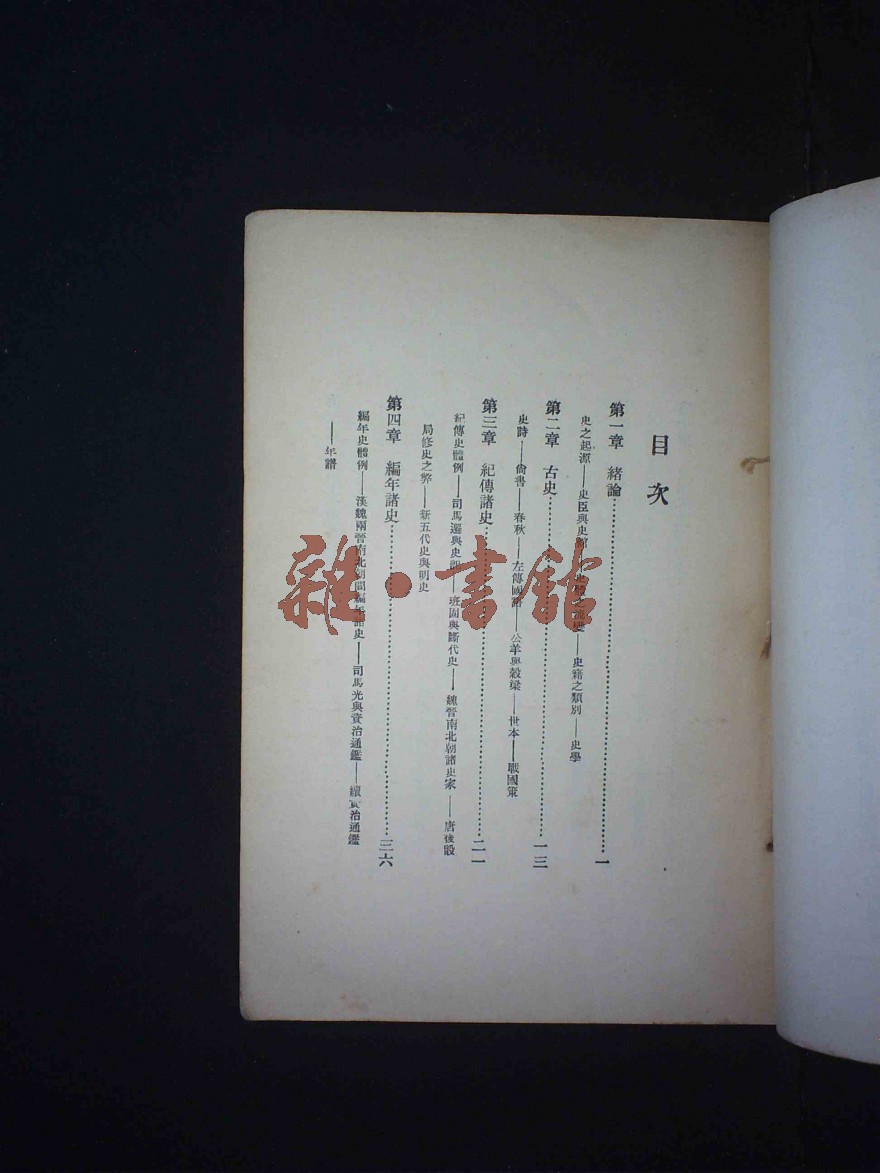 目次
第一章 緒論…………一
史之起源——史臣與史館——史體之流變——史籍之類別——史學
第二章 古史…………一三
史時——尙書——春秋——左傳國語——公羊與穀梁——世本——戰國策
第三章 紀傳諸史…………二一
紀傳史體例——司馬遷與史記——班固與斷代史——魏晉南北朝諸史家——唐後設
局修史之弊——新五代史與明史
第四章 編年諸史…………三六
編年史體例——漢魏兩晉南北朝間編年諸史——司馬光與資治通鑑——續資治通鑑
——年譜
雜·書館